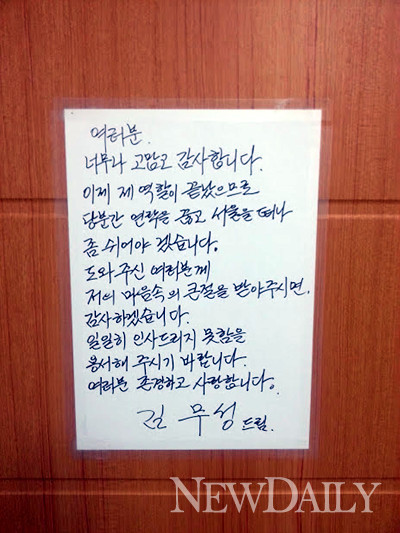 여러분.
너무나 고맙고 감사합니다.
이제 제 역할이 끝났으므로
당분간 연락을 끊고 서울을 떠나
좀 쉬어야 겠습니다.
도와주신 여러분께
저의 마음속의 큰절을 받아주시면,
감사하겠습니다.
일일히 인사드리지 못함을
용서해 주시기 바랍니다.
여러분 존경하고 사랑합니다.
김 무 성 드림.
NEWDAILY